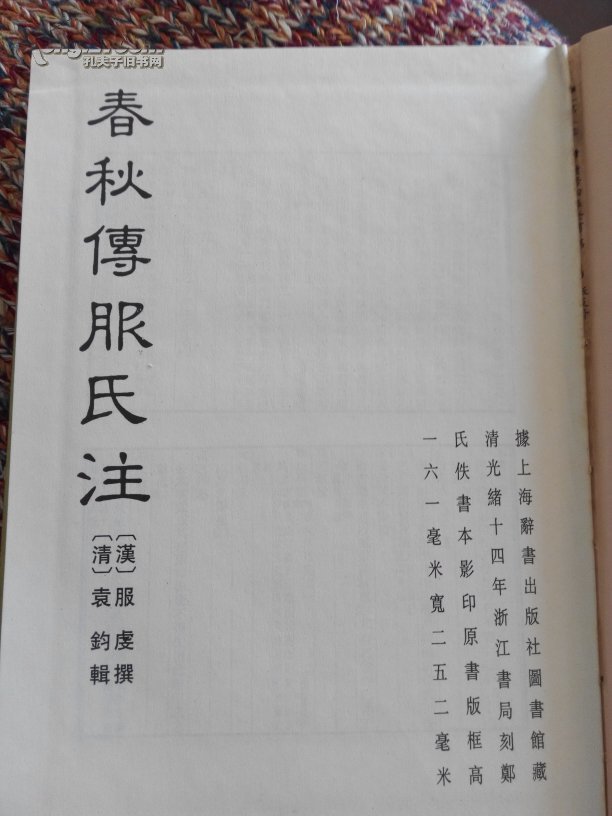 孔夫子旧书网
春秋傳服氏注
〔漢〕服虔撰
〔清〕袁鈞輯
據上海辭書出版社圖書館藏
清光緒十四年浙江書局刻鄭
氏佚書本影印原書版框高
一六一毫米寬二五二毫米